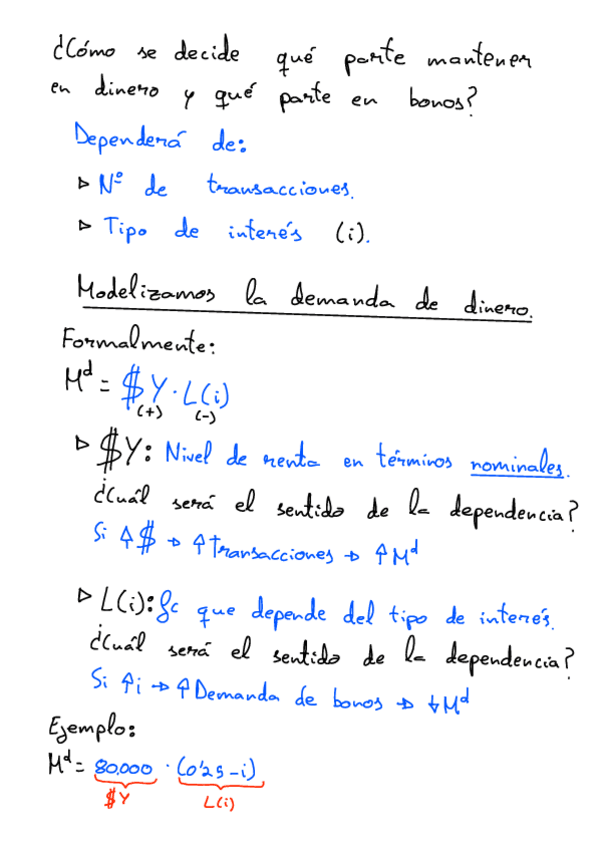 ¿Cómo se decide qué parte mantener
en dinero y qué parte en bonos?
Dependerá de:
▷ Nº de transacciones.
▷ Tipo de interés (i).
Modelizamos la demanda de dinero.
Formalmente:
Mᵈ = $Y · L(i)
(+) (-)
▷ $Y: Nivel de renta en términos nominales.
¿Cuál será el sentido de la dependencia?
Si ↑$ → ↑transacciones → ↑Mᵈ
▷ L(i): fc que depende del tipo de interés.
¿Cuál será el sentido de la dependencia?
Si ↑i → ↑Demanda de bonos → ↓Mᵈ
Ejemplo:
Mᵈ = 80.000 · (0'25 - i)
$Y L(i)